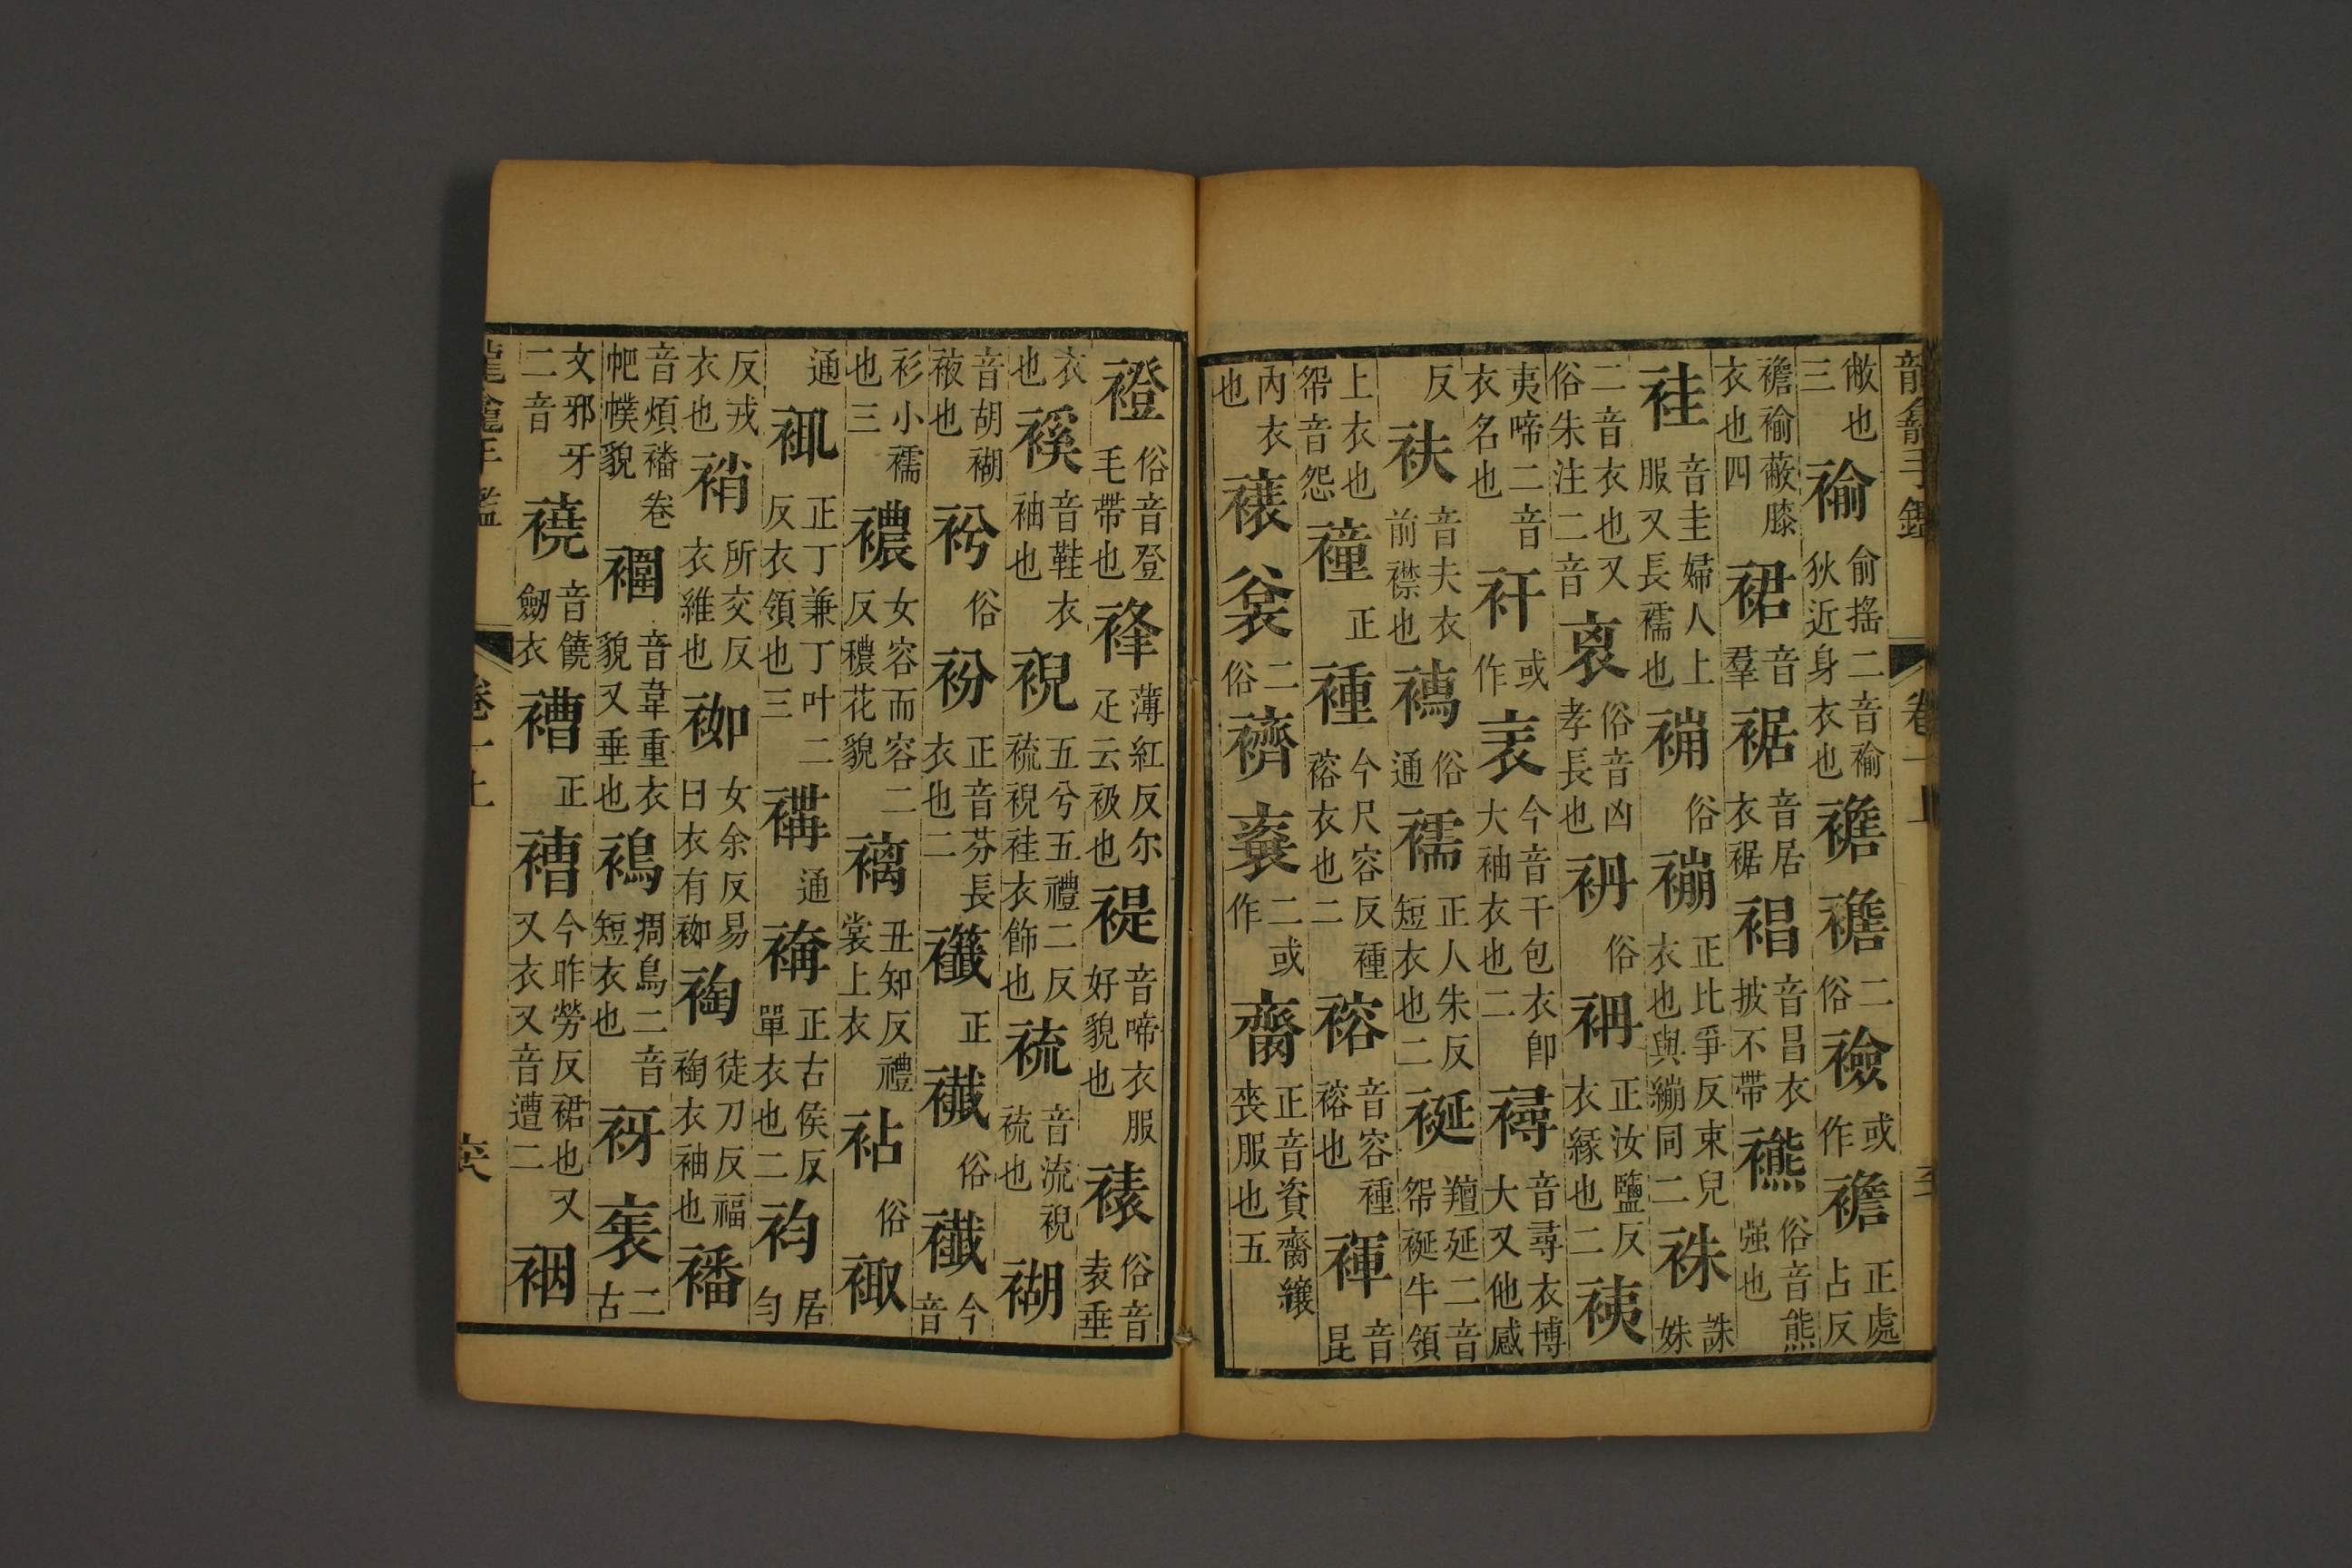 敝也三褕俞搖二音褕狄近身衣也襜襜二俗襝或作襜正處占反
襜褕蔽膝衣也四裙音羣裾音居衣裾裮音昌衣披不帶䙺俗音熊强也
袿音圭婦人上服又長襦也𧚔俗䙀正比爭反束兒衣也與繃同二袾誅姝
二音衣也又俗朱注二音𧙃俗音凶孝長也䄡俗袡正汝鹽反衣緣也二桋
夷啼二音衣名也衦或作𧘝今音干包衣卽大袖衣也二襑音尋衣博大又他感
反衭音夫衣前襟也𧜗俗通襦正人朱反短衣也二裷羶延二音帤㡩牛領
上衣也帤音怨𧝎正褈今尺容反種褣衣也二褣音容種褣也褌音昆
內衣也㐮衮二俗䙠二或作齌正音資齌纕喪服也五
龍龕手鑑 卷一上 至
襚俗音登毛帶也䙜薄紅反尔疋云衱也褆音啼衣服好貌也䙋俗音袁垂
衣也䙎音鞋衣袖也䘽五兮五禮二反裗䘽袿衣飾也裗音流䘽裗也䘾
音胡䘾袚也𧘲俗衯正音芬長衣也二襳正襳俗襳今音
衫小襦也三襛女容而容二反穠花貌褵丑知反禮裳上衣袩俗䘣
通䘢正丁兼丁叶二反衣領也三褠通褠正古侯反單衣也二袀居勻
反戎衣也䘯所交反衣維也袽女余反易曰衣有袽裪徒刀反福裪衣袖也襎
音煩襎卷帊幞貌褘音韋重衣貌又垂也䙚裯鳥二音短衣也衺二古
文邪牙二音襓音饒劒衣褿正褿今昨勞反裙也又衣又音遭二裀
龍龕手鑑 卷一上 至六